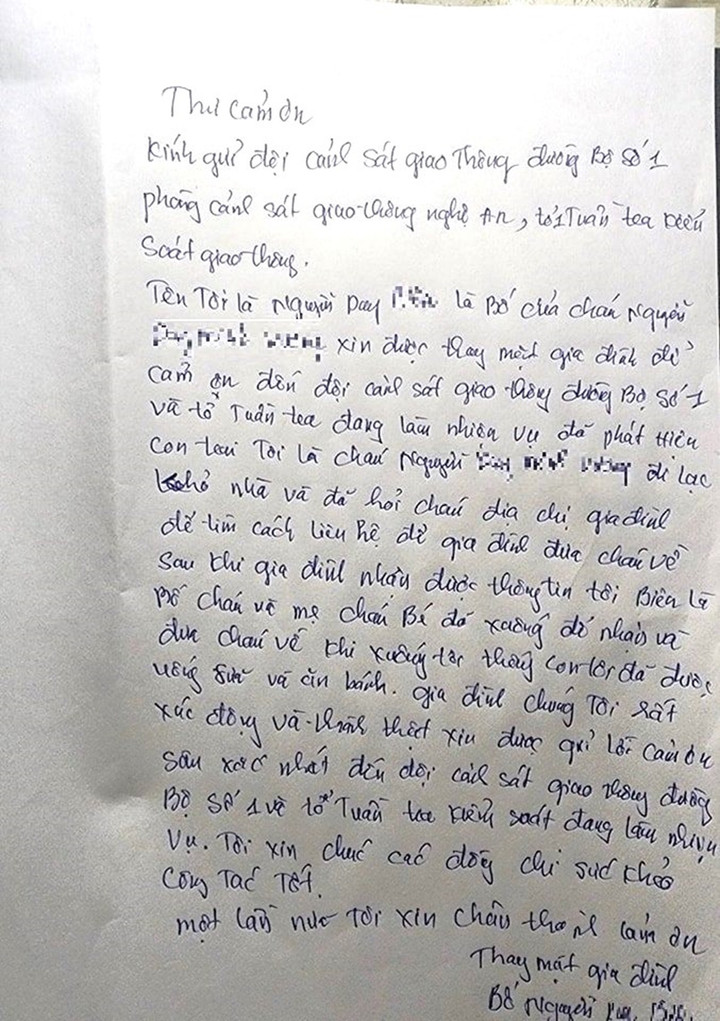 Thư cảm ơn
Kính gửi đội cảnh sát giao thông đường Bộ Số 1
phòng cảnh sát giao thông nghệ An, tổ Tuần tra kiểm
Soát giao thông.
Tên Tôi là Nguyễn Duy là Bố của cháu Nguyễn
xin được thay mặt gia đình để
cảm ơn đến đội cảnh sát giao thông đường Bộ Số 1
và tổ Tuần tra đang làm nhiệm vụ đã phát hiện
con trai Tôi là cháu Nguyễn đi lạc
khỏi nhà và đã hỏi cháu địa chỉ gia đình
để tìm cách liên hệ để gia đình đưa cháu về
Sau khi gia đình nhận được thông tin tôi Biên là
Bố cháu và mẹ cháu Bé đã xuống để nhận và
đưa cháu về khi xuống tôi thấy con tôi đã được
uống sữa và ăn bánh. gia đình chúng Tôi rất
xúc động và thành thật xin được gửi lời cảm ơn
sâu xắc nhất đến đội cảnh sát giao thông đường
Bộ Số 1 và tổ Tuần tra kiểm soát đang làm nhiệm
Vụ. Tôi xin chúc các đồng chí sức khỏe
Công Tác Tốt.
một lần nữa Tôi xin chân thành cảm ơn
Thay mặt gia đình
Bố Nguyễn